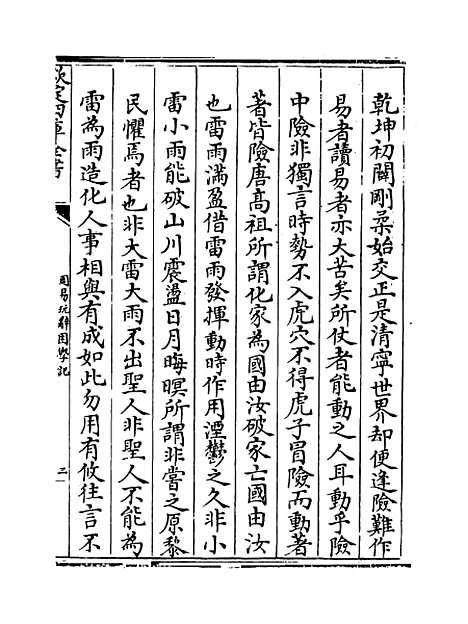 乾坤初闢剛柔始交正是清寧世界却便逢險難作
易者讀易者亦大苦矣所仗者能動之人耳動乎險
中險非獨言時勢不入虎穴不得虎子冒險而動著
著皆險唐髙祖所謂化家為國由汝破家亡國由汝
也雷雨滿盈借雷雨發揮動時作用湮鬱之久非小
雷小雨能破山川震盪日月晦暝所謂非嘗之原黎
民懼焉者也非大雷大雨不出聖人非聖人不能為
雷為雨造化人事相與有成如此勿用有攸往言不
欽定四庫全書
周易玩辭困學記